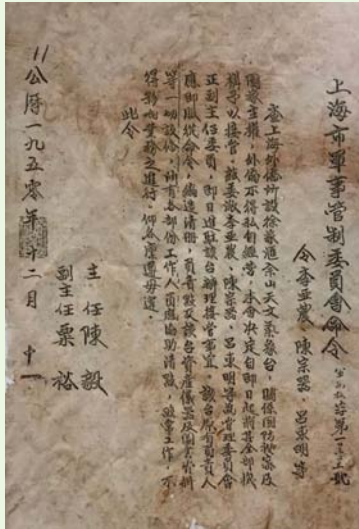 上海市軍事管制委員會命令
令李亞農、陳宗器、呂東明等
查上海外僑所設徐家滙佘山天文氣象台，關係國防秘密及
國家主權，外僑不得私自經營，本會決定自即日起將其全部機
構予以接管，茲委派李亞農、陳宗器、呂東明等為管理委員會
正副主任委員，即日進駐該台辦理接管事宜。該台原有負責人
應即服從命令，編造清冊，負責點交該台資產儀器及圖書
等一切設備，所有各部份工作人員應協助清點，照常工作，不
得影响業務之進行。仰各凜遵毋違。
此令
主任陳毅
副主任粟裕
公曆一九五零年十二月十一